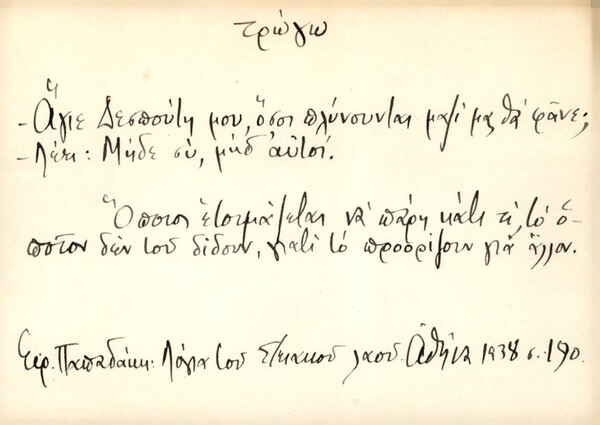 τρώγω
- Ἅγιε Δεσπότη μου, ὅσοι πλύνουνται μαζί μας θά φᾶνε;
- Λέει: Μηδέ σύ, μηδ' αὐτοί.
Ὅποιος ἑτοιμάζεται νά πάρῃ κάτι τί, τό ὁ-
ποῖον δέν τοῦ δίδουν, γιατί τό προορίζουν γιά ἄλλον.
Εἰρ. Παπαδάκη: Λόγια τοῦ Στειακοῦ λαοῦ. Ἀθήνα 1938 σ. 190.